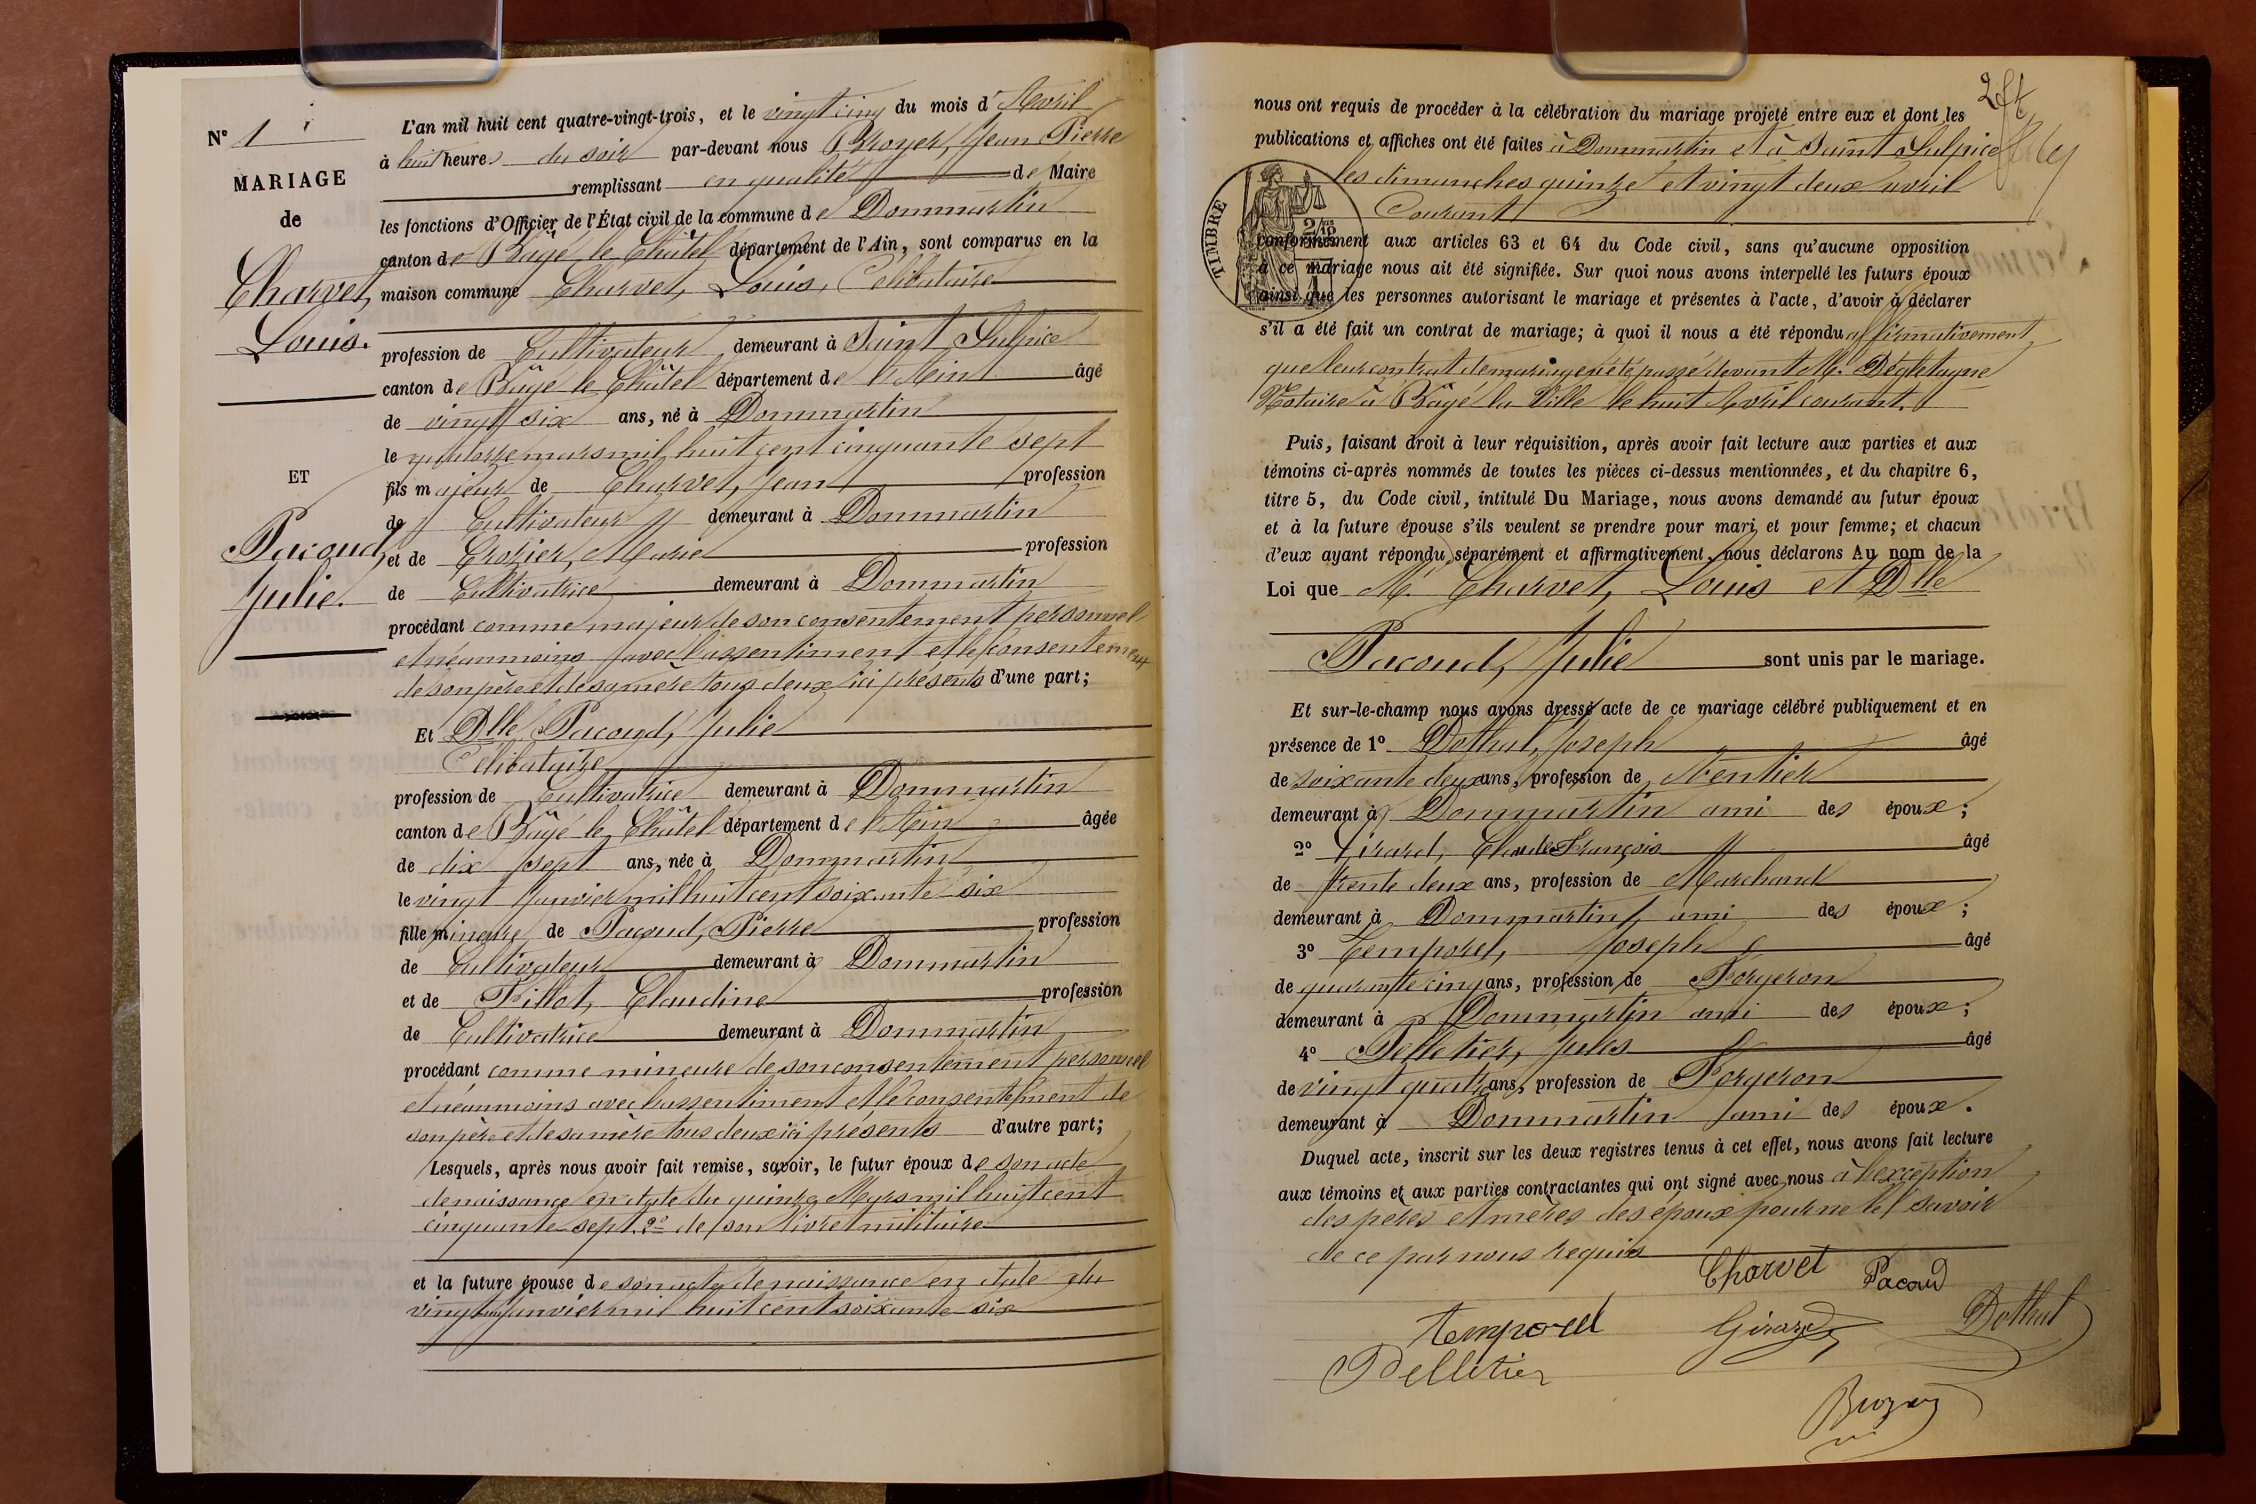 N° 1
MARIAGE
de
Charvet,
Louis.
ET
Pacoud,
Julie.
L'an mil huit cent quatre-vingt-trois, et le vingt cinq du mois d'Avril
à huit heures du soir par-devant nous Broyer, Jean Pierre
remplissant en qualité de Maire
les fonctions d'Officier de l'État civil de la commune de Dommartin
canton de Bâgé le Châtel département de l'Ain, sont comparus en la
maison commune Charvet, Louis, Célibataire
profession de Cultivateur demeurant à Saint Sulpice
canton de Bâgé le Châtel département de l'Ain âgé
de vingt six ans, né à Dommartin
le quatorze mars mil huit cent cinquante sept
fils majeur de Charvet, Jean profession
de Cultivateur demeurant à Dommartin
et de Crozier, Marie profession
de Cultivatrice demeurant à Dommartin
procédant comme majeur de son consentement personnel
et néanmoins avec l'assentiment et le consentement
de son père et de sa mère tous deux ici présents d'une part;
Et Dlle Pacoud, Julie
Célibataire
profession de Cultivatrice demeurant à Dommartin
canton de Bâgé le Châtel département de l'Ain âgée
de dix sept ans, née à Dommartin
le vingt Janvier mil huit cent soixante six
fille mineure de Pacoud, Pierre profession
de Cultivateur demeurant à Dommartin
et de Fillot, Claudine profession
de Cultivatrice demeurant à Dommartin
procédant comme mineure de son consentement personnel
et néanmoins avec l'assentiment et le consentement de
son père et de sa mère tous deux ici présents d'autre part;
Lesquels, après nous avoir fait remise, savoir, le futur époux de son acte
de naissance en date du quinze Mars mil huit cent
cinquante-sept. 2° de son livret militaire
et la future épouse de son acte de naissance en date du
vingt un Janvier mil huit cent soixante-six
nous ont requis de procéder à la célébration du mariage projeté entre eux et dont les
publications et affiches ont été faites à Dommartin et à Saint Sulpice
les dimanches quinze et vingt deux avril
Courant
TIMBRE
conformément aux articles 63 et 64 du Code civil, sans qu'aucune opposition
à ce mariage nous ait été signifiée. Sur quoi nous avons interpellé les futurs époux
ainsi que les personnes autorisant le mariage et présentes à l'acte, d'avoir à déclarer
s'il a été fait un contrat de mariage; à quoi il nous a été répondu affirmativement
que leur contrat de mariage a été passé devant M. Dégletagne
Notaire à Bâgé la Ville le huit Avril courant.
Puis, faisant droit à leur réquisition, après avoir fait lecture aux parties et aux
témoins ci-après nommés de toutes les pièces ci-dessus mentionnées, et du chapitre 6,
titre 5, du Code civil, intitulé Du Mariage, nous avons demandé au futur époux
et à la future épouse s'ils veulent se prendre pour mari et pour femme; et chacun
d'eux ayant répondu séparément et affirmativement, nous déclarons Au nom de la
Loi que M. Charvet, Louis et Dlle
Pacoud, Julie sont unis par le mariage.
Et sur-le-champ nous avons dressé acte de ce mariage célébré publiquement et en
présence de 1° Dothal, Joseph âgé
de soixante deux ans, profession de Rentier
demeurant à Dommartin ami des époux;
2° Girard, Claude François âgé
de trente deux ans, profession de Marchand
demeurant à Dommartin, ami des époux;
3° Temporel, Joseph âgé
de quarante cinq ans, profession de Forgeron
demeurant à Dommartin ami des époux;
4° Pelletier, Jules âgé
de vingt quatre ans, profession de Forgeron
demeurant à Dommartin ami des époux.
Duquel acte, inscrit sur les deux registres tenus à cet effet, nous avons fait lecture
aux témoins et aux parties contractantes qui ont signé avec nous à l'exception
des pères et mères des époux pour ne le savoir
de ce par nous requis
Charvet Pacoud
Temporel Girard Dothal
Pelletier
Broyer